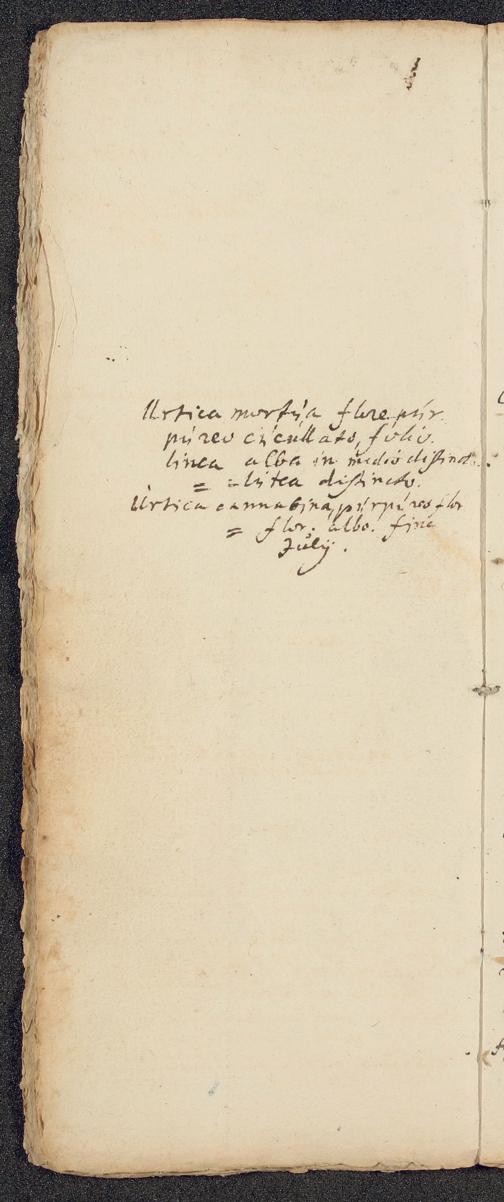 Urtica mortúa flore púr
púreo cúcullato, folio.
linea alba in medio distinct.
= = lútea distincto.
Urtica cannabina, púrpúreo flor
= flor. albo. fine
Júlÿ.